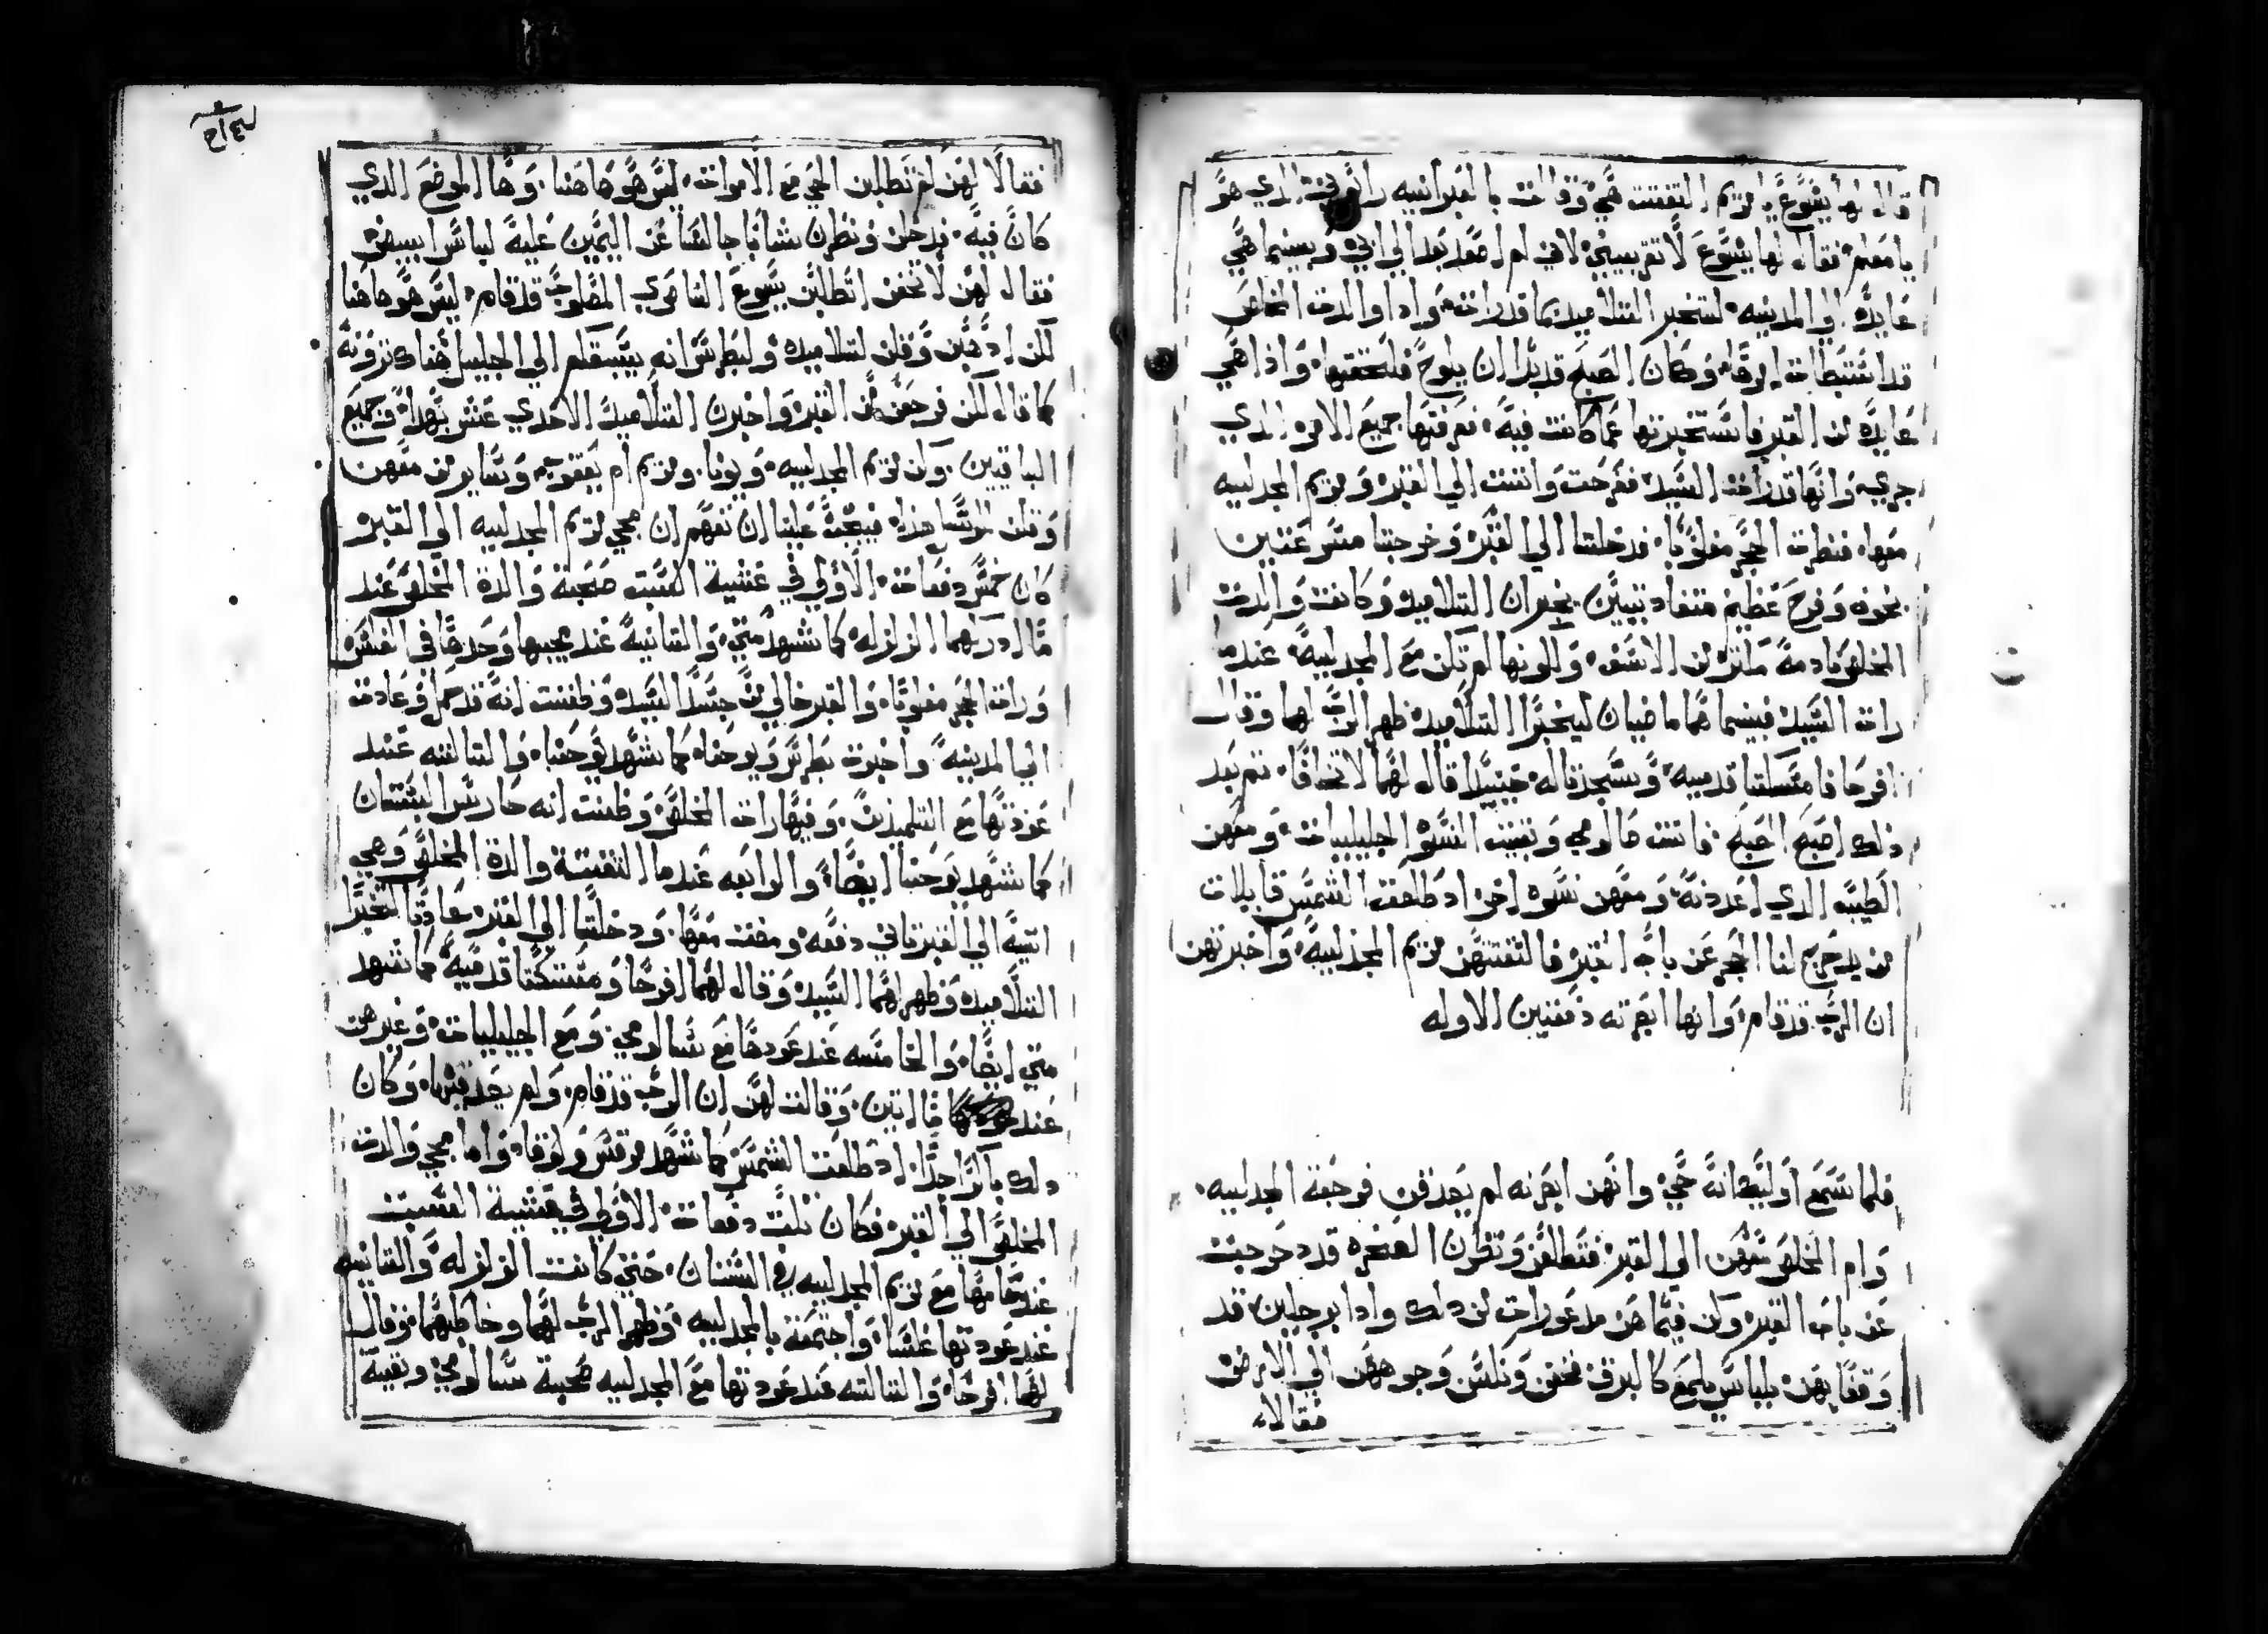 قال لها يسوع يا مريم التفتت هي وقالت بالعبرانيه رابوني الدي هو
يا معلم فقال لها يسوع لا تقربيني لاني لم اصعد بعد الي ابي وبينما هي
عايده الي المدينه لتخبر التلاميد بما قد رات وادا والدت المخلص
قد استبطات الرقاد وكان الصبح قد بدا ان يلوح فلحقتها واذا هي
عايده من القبر فاستخبرتها عما كانت فيه فعرفتها جميع الامر الدي
جري وانها قد رات السيد ففرحت واتت الي القبر ومريم المجدليه
معها فنظرت الحجر مقلوبا فدخلتا الي القبر وخرجتا مسرعتين
بخوف وفرح عظيم متعاديتين يخبران التلاميد وكانت والدت
المخلص
رات السيد فبينما هما ماضيان ليخبرا التلاميد ظهر الرب لهما وقال
افرحا فامسكتا قدميه وسجدتا له حينيدا قال لهما لا تخافا ثم بعد
ذلك اصبح الصبح فاتت صالومي وبقيت النسوا الجليليات ومعهن
الطيب الدي اعددنه ومعهن نسوه اخر اد طلعت الشمس قايلات
من يدحرج لنا الحجر عن باب القبر فالتقتهن مريم المجدليه واخبرتهن
ان الرب قد قام وانها ابصرته دفعتين الاوله
فلما سمع اوليك انه حي وانهن ابصرنه لم يصدقن فرجعة المجدليه
وام المخلص معهن الي القبر فتطلعن ونظرن الصخره قد دحرجت
عن باب القبر وكن فيما هن مدعورات من دلك وادا برجلين قد
وقفا بهن بلباس يلمع كالبرق فخفن ونكسن وجوههن الي الارض
فقالا
فقالا لهن لم تطلبن الحي مع الاموات ليس هو هاهنا وها الموضع الدي
كان فيه فدخلن ونظرن شابا جالسا عن اليمين عليه لباسا ابيض
فقال لهن لا تخفن اتطلبن يسوع الناصري المصلوب قد قام ليس هو هاهنا
لكن ادهبن وقلن لتلاميده ولبطرس انه يسبقكم الي الجليل هناك ترونه
كما قال لكن فرجعن من القبر واخبرن التلاميد الاحدي عشر بهدا وجميع
الباقيين وكن مريم المجدليه ويونا ومريم ام يعقوب وسايرن معهن
وقلن للرسل هذا فيجب علينا ان نفهم ان مجي مريم المجدليه الي القبر
كان خمس دفعات الاولي في عشية السبت صحبة والدة المخلص عند
ما ادركهما الزلزله كما شهد متي والتانية عند مجيها وحدها في الغلس
ورات الحجر مقلوبا والقبر خالي من جسد السيد وظنت انه قد حمل وعادت
الي المدينه واخبرت بطرس ويوحنا كما شهد يوحنا والتالته عند
عودتها مع التلميذين وفيها رات المخلص وظنت انه حارس البستان
كما شهد يوحنا ايضا والرابعه عندما التقت والدة المخلص وهي
اتية الي القبر تاني دفعه ومضت معها ودخلتا الي القبر عادتا لتخبرا
التلاميد وظهر لهما السيد وقال لهما افرحا ومسكتا قدميه كما شهد
متي ايضا والخامسه عند عودها مع سالومي ومع الجليليات وغيرهن
عند ما اتين وقالت لهن ان الرب قد قام ولم يصدقنها وكان
دلك باكرا جدا اد طلعت الشمس كما شهد مرقس ولوقا واما مجي والدت
المخلص الي القبر فكان تلت دفعات الاولي في عشية السبت
عند مقامها مع مريم المجدليه في البستان حتي كانت الزلزله والتانيه
عند عودتها غلسا واجتمعة بالمجدليه وظهر الرب لهما وخاطبهما وقال
لهما افرحا والتالته عند عودتها مع المجدليه صحبة سالومي وبقية